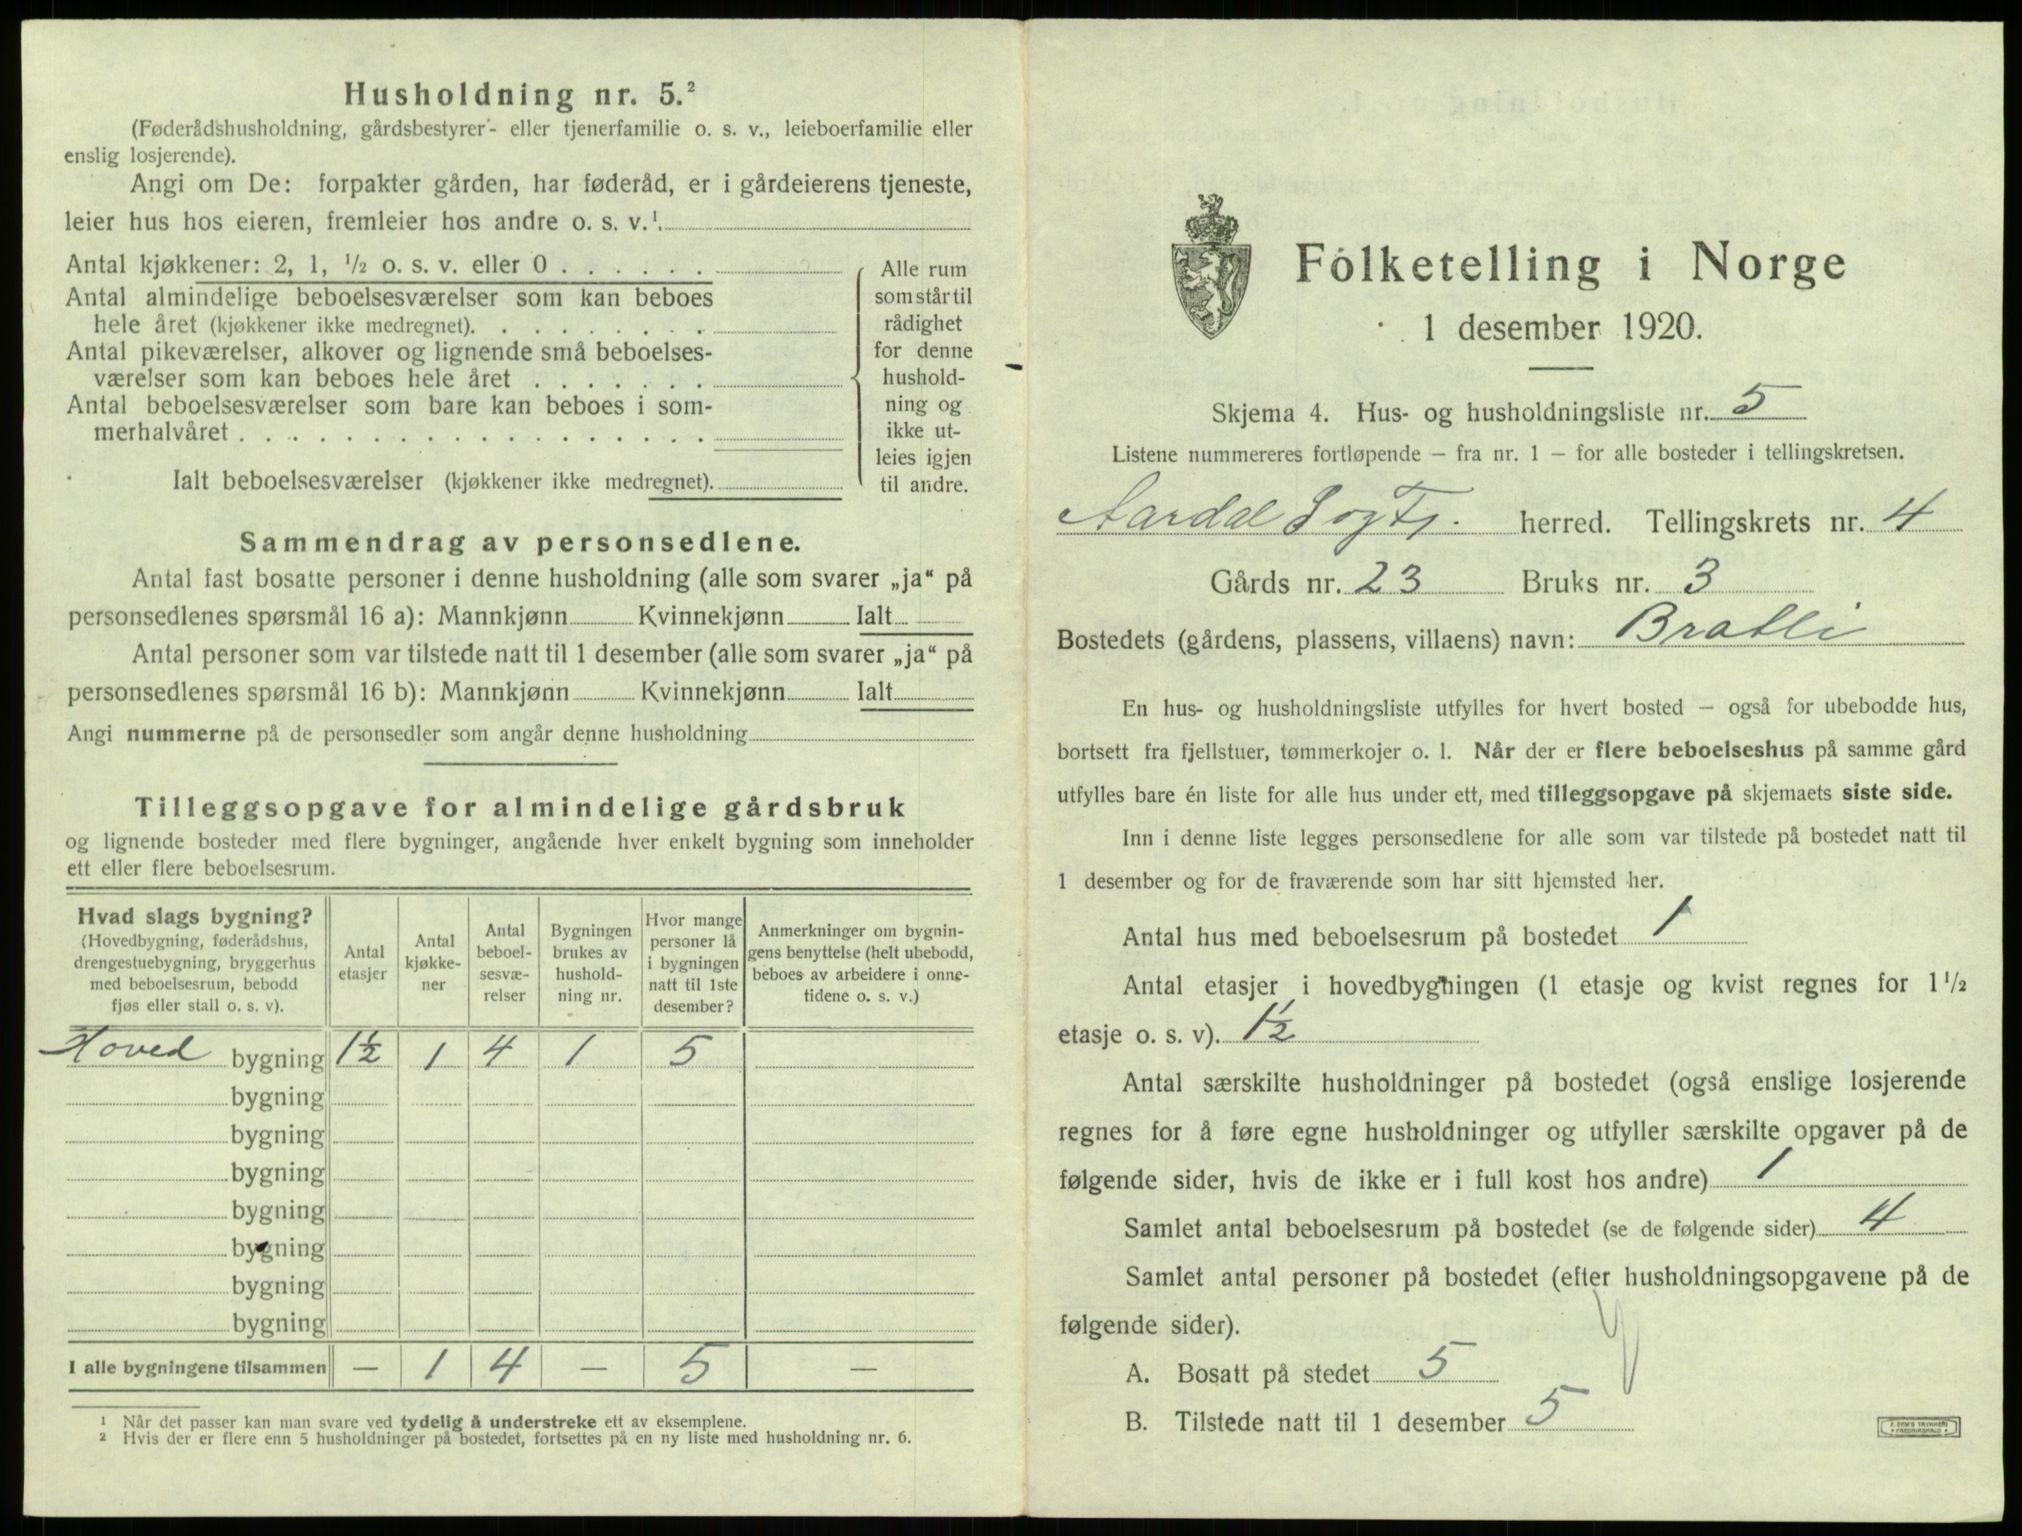 Husholdning nr. 5.²
(Føderådshusholdning, gårdsbestyrer- eller tjenerfamilie o. s. v., leieboerfamilie eller
enslig losjerende).
Angi om De: forpakter gården, har føderåd, er i gårdeierens tjeneste,
leier hus hos eieren, fremleier hos andre o. s. v.¹.
Antal kjøkkener: 2, 1, ½ o. s. v. eller 0 . . . . . .
Antal almindelige beboelsesværelser som kan beboes
hele året (kjøkkener ikke medregnet). . . . . . . . .
Antal pikeværelser, alkover og lignende små beboelses-
værelser som kan beboes hele året . . . . . . .
Antal beboelsesværelser som bare kan beboes i som-
merhalvåret . . . . . . . . . . . . . . . . . .
Ialt beboelsesværelser (kjøkkener ikke medregnet).
Alle rum
som står til
rådighet
for denne
hushold-
ning og
ikke ut-
leies igjen
til andre.
Sammendrag av personsedlene.
Antal fast bosatte personer i denne husholdning (alle som svarer „ja“ på
personsedlenes spørsmål 16 a): Mannkjønn Kvinnekjønn Ialt
Antal personer som var tilstede natt til 1 desember (alle som svarer „ja“ på
personsedlenes spørsmål 16 b): Mannkjønn Kvinnekjønn Ialt
Angi nummerne på de personsedler som angår denne husholdning
Tilleggsopgave for almindelige gårdsbruk
og lignende bosteder med flere bygninger, angående hver enkelt bygning som inneholder
ett eller flere beboelsesrum.
Hvad slags bygning?
(Hovedbygning, føderådshus,
drengestuebygning, bryggerhus
med beboelsesrum, bebodd
fjøs eller stall o. s. v).
Antal
etasjer
Antal
kjøkke-
ner
Antal
beboel-
sesvæ-
relser
Bygningen
brukes av
hushold-
ning nr.
Hvor mange
personer lå
i bygningen
natt til 1ste
desember?
Anmerkninger om bygnin-
gens benyttelse (helt ubebodd,
beboes av arbeidere i onne-
tidene o. s. v.)
Hoved bygning 1½ 1 4 1 5
bygning
bygning
bygning
bygning
bygning
bygning
bygning
I alle bygningene tilsammen — 1 4 — 5 —
¹ Når det passer kan man svare ved tydelig å understreke ett av eksemplene.
² Hvis der er flere enn 5 husholdninger på bostedet, fortsettes på en ny liste med husholdning nr. 6.
Folketelling i Norge
1 desember 1920.
Skjema 4. Hus- og husholdningsliste nr. 5
Listene nummereres fortløpende – fra nr. 1 – for alle bosteder i tellingskretsen.
Aardal Sogn Fj. herred. Tellingskrets nr. 4
Gårds nr. 23 Bruks nr. 3
Bostedets (gårdens, plassens, villaens) navn: Bratli
En hus- og husholdningsliste utfylles for hvert bosted – også for ubebodde hus,
bortsett fra fjellstuer, tømmerkojer o. l. Når der er flere beboelseshus på samme gård
utfylles bare én liste for alle hus under ett, med tilleggsopgave på skjemaets siste side.
Inn i denne liste legges personsedlene for alle som var tilstede på bostedet natt til
1 desember og for de fraværende som har sitt hjemsted her.
Antal hus med beboelsesrum på bostedet 1
Antal etasjer i hovedbygningen (1 etasje og kvist regnes for 1½
etasje o. s. v). 1½
Antal særskilte husholdninger på bostedet (også enslige losjerende
regnes for å føre egne husholdninger og utfyller særskilte opgaver på de
følgende sider, hvis de ikke er i full kost hos andre) 1
Samlet antal beboelsesrum på bostedet (se de følgende sider) 4
Samlet antal personer på bostedet (efter husholdningsopgavene på de
følgende sider).
A. Bosatt på stedet 5
B. Tilstede natt til 1 desember 5